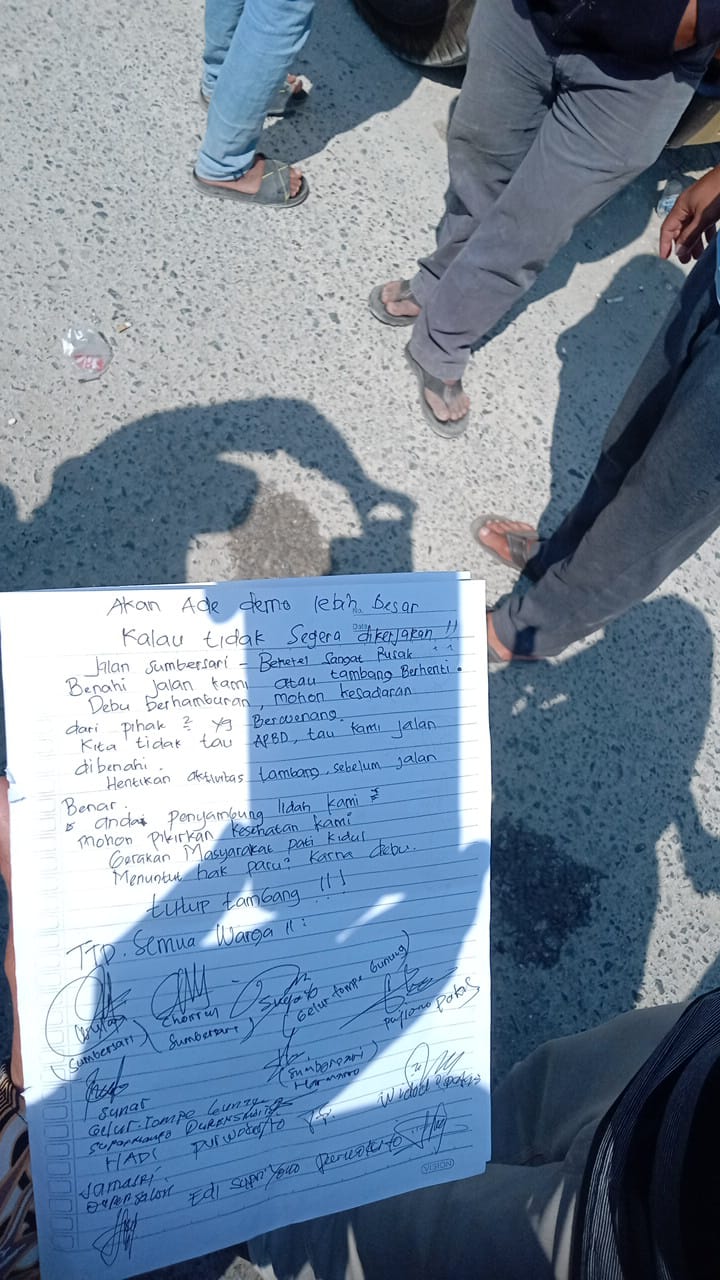 Akan Ade demo lebih Besar
Kalau tidak Segera dikerjakan !!
Jalan Sumbersari - Beketel Sangat Rusak !!
Benahi jalan kami atau tambang Berhenti.
Debu Berhamburan, mohon kesadaran
dari pihak 2 yg Berwenang.
Kita tidak tau APBD, tau kami jalan
dibenahi.
Hentikan aktivitas tambang, sebelum jalan
Benar.
anda penyambung lidah kami
mohon Pikirkan kesehatan kami
Gerakan Masyarakat pati Kidul
Menuntut hak paru2 karna debu.
tutup tambang !!!
TTD. Semua Warga !! :
(Sumbersari) (Sumbersari) (Gelur. tompe Gunung)
Pujiono Pakis
(Sumbersari)
Harmanto
Sunar
Gelur. tompe Gunung
HADI Purwokerto
Widodo Pakis
Jamasri
Edi Supriyono Purwokerto
VISION